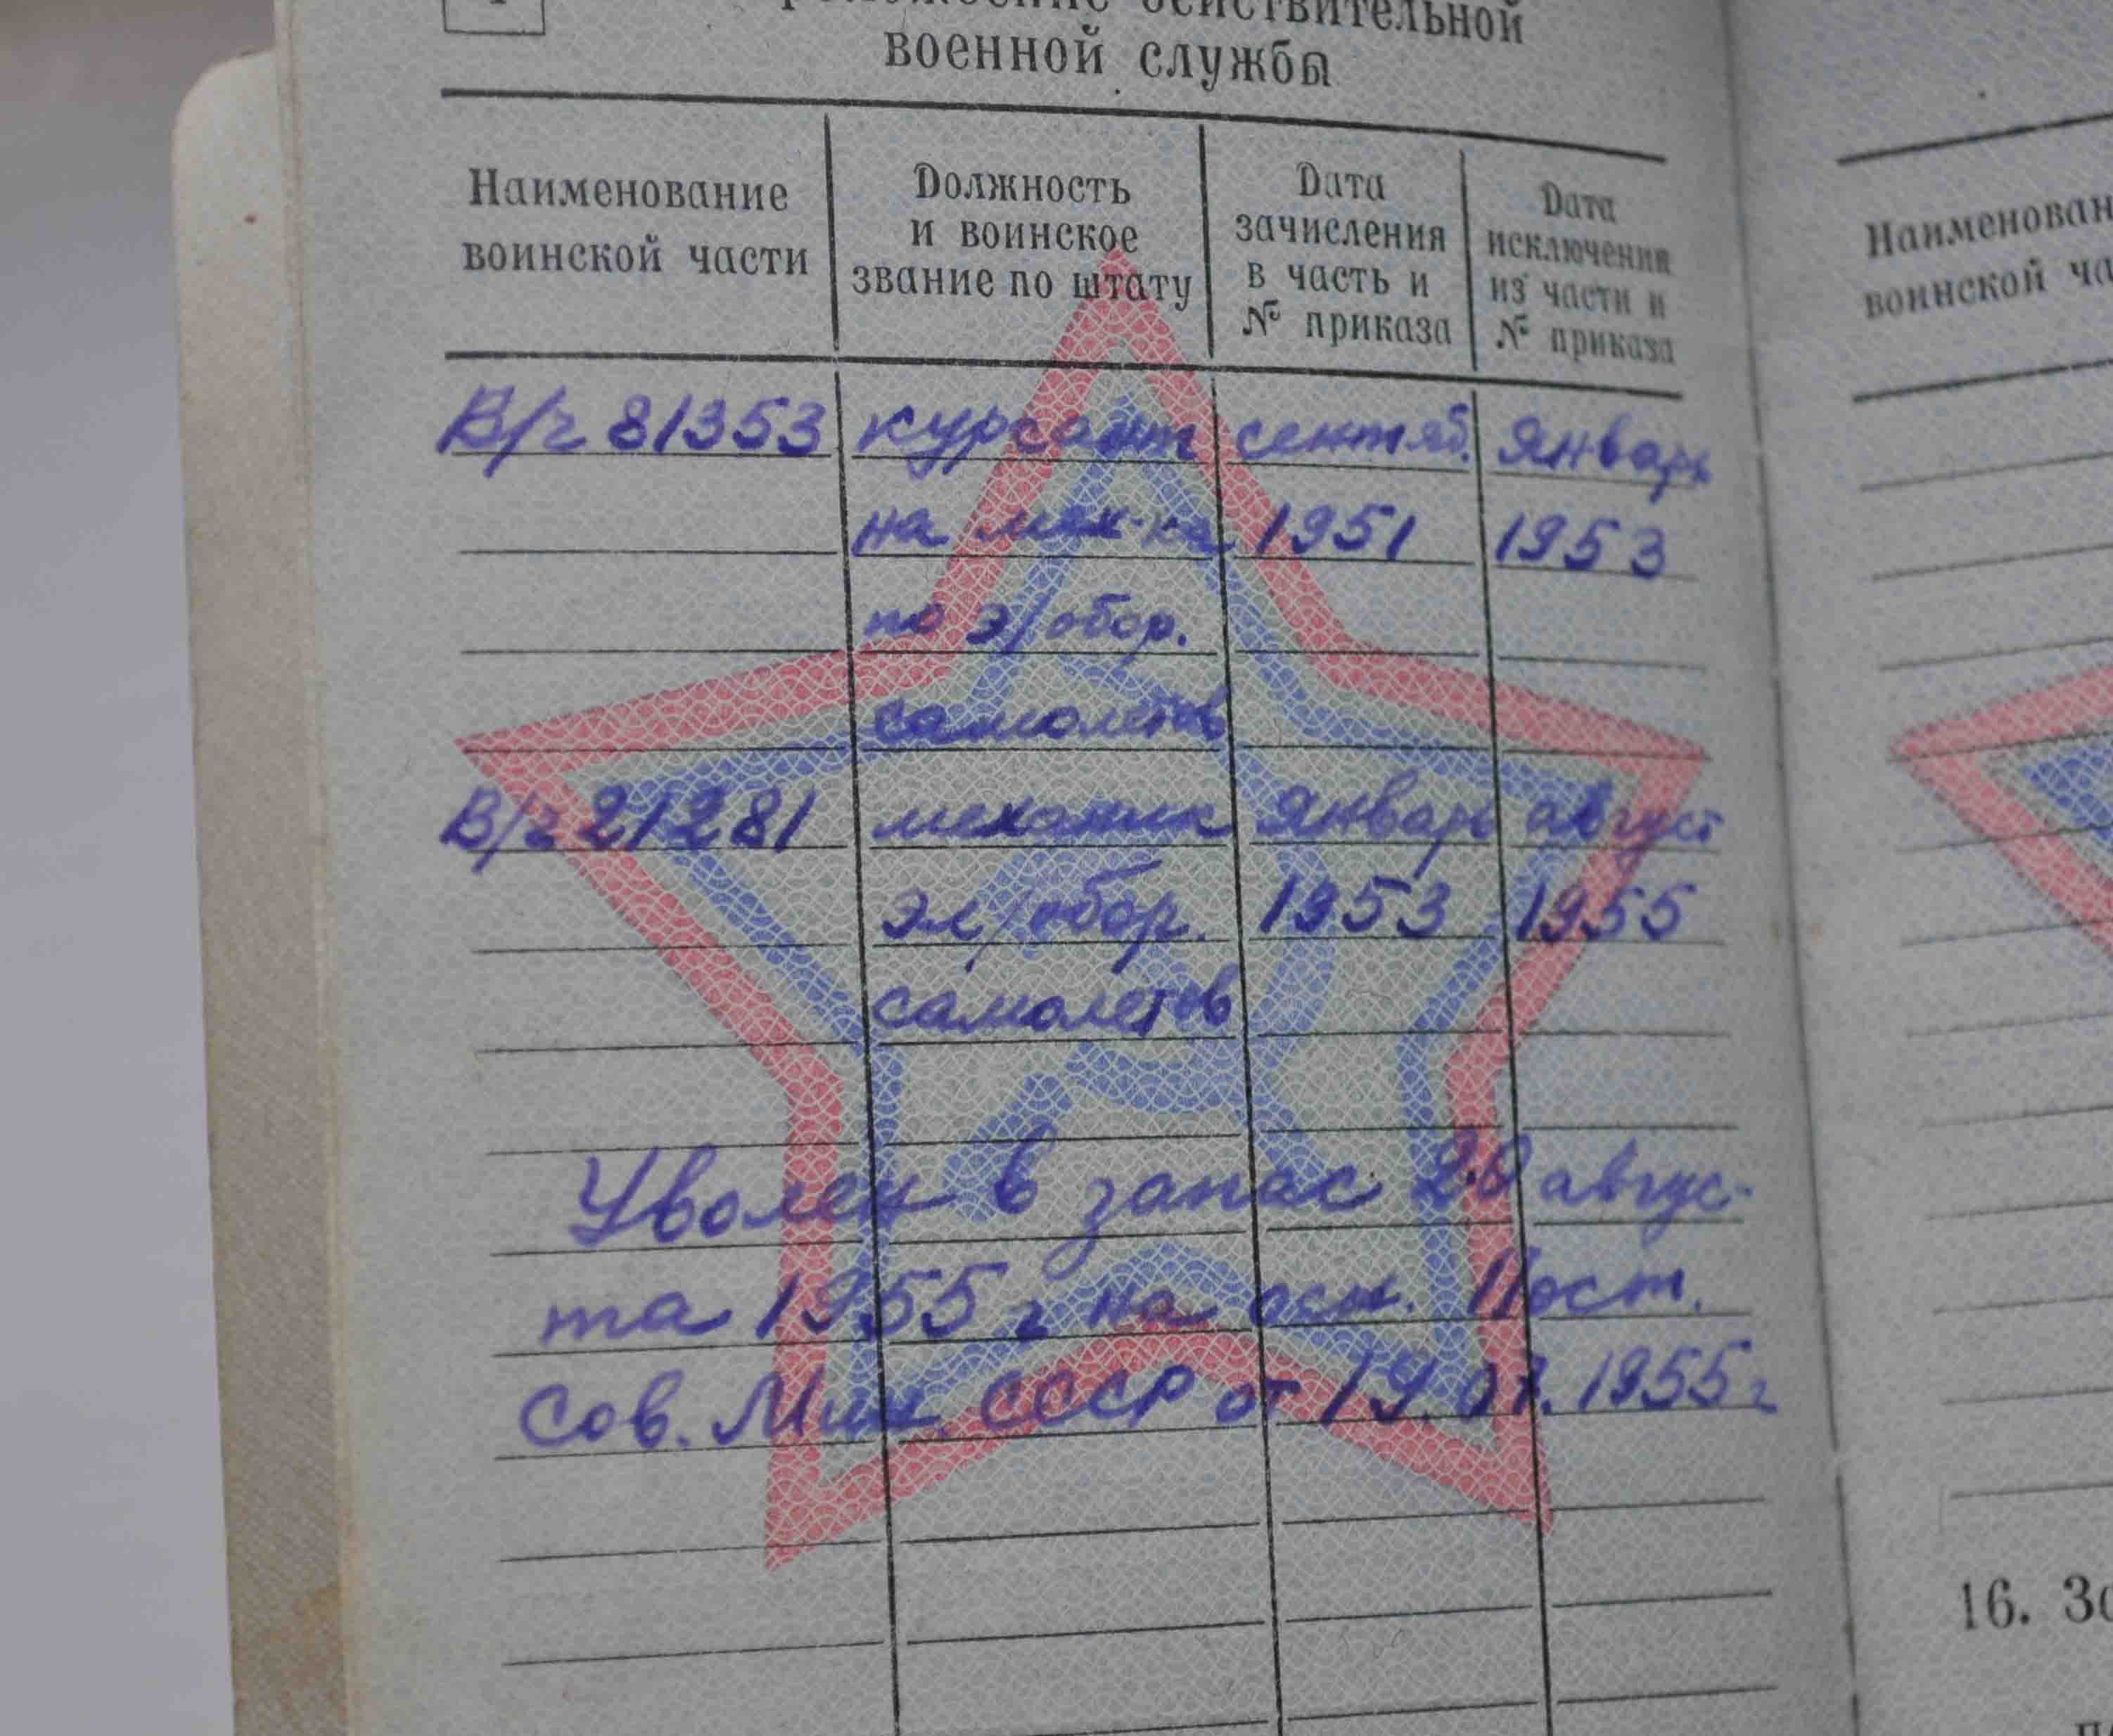 действительной
военной службы
Наименование воинской части
Должность и воинское звание по штату
Дата зачисления в часть и № приказа
Дата исключения из части и № приказа
В/ч 81353 курсант сентяб. январь
на мех-ка 1951 1953
по э/обор.
самолетов
В/ч 21281 механик январь август
эл/обор. 1953 1955
самолетов
Уволен в запас 20 авгус-
та 1955 г на осн. Пост.
Сов. Мин. СССР от 19.07.1955 г
Наименован
воинской ча
16. За